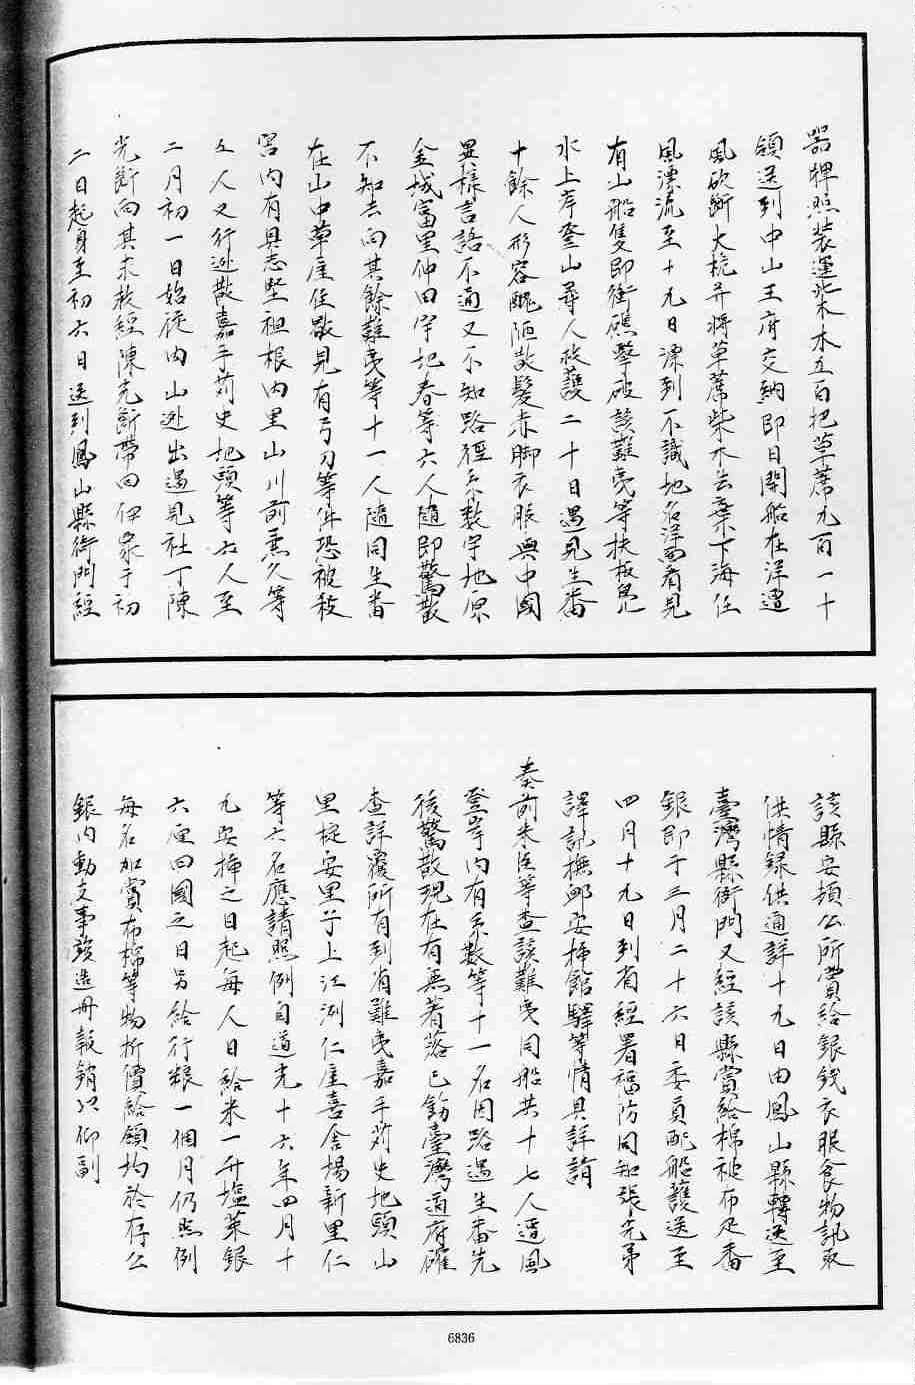 器牌照裝運柴木五百把草蓆九百一十
領送到中山王府交納即日開船在洋遭
風砍斷大桅并將草蓆柴木丟棄下海任
風漂流至十九日漂到不識地名洋面看見
有山船隻即衝礁擊破該難夷等扶板鳧
水上岸登山尋人救護二十日遇見生番
十餘人形容醜陋散髮赤脚衣服與中國
異樣言語不通又不知路徑系數宇地原
金城富里仲田宇地春等六人隨即驚散
不知去向其餘難夷等十一人隨同生番
在山中草屋住歇見有弓刀等件恐被殺
害內有具志堅祖根內里山川前熏久等
五人又行逃散嘉手苅史地頭等六人至
二月初一日始從內山逃出遇見社丁陳
光斷向其求救經陳光斷帶回伊家于初
二日起身至初六日送到鳳山縣衙門經
該縣安頓公所賞給銀錢衣服食物訊取
供情錄供通詳十九日由鳳山縣轉送至
臺灣縣衙門又經該縣賞給棉褂布疋番
銀即于三月二十六日委員配船護送至
四月十九日到省經署福防同知張先第
譯訊撫卹安插館驛等情具詳請
奏前來臣等查該難夷同船共十七人遭風
登岸內有系數等十一名因路遇生番先
後驚散現在有無著落已飭臺灣道府確
查詳覆所有到省難夷嘉手苅史地頭山
里掟安里子上江洌仁屋喜舍場新里仁
等六名應請照例自道光十六年四月十
九安插之日起每人日給米一升塩菜銀
六厘回國之日另給行粮一個月仍照例
每名加賞布棉等物折價給領均於存公
銀內動支事竣造冊報銷以仰副
6836